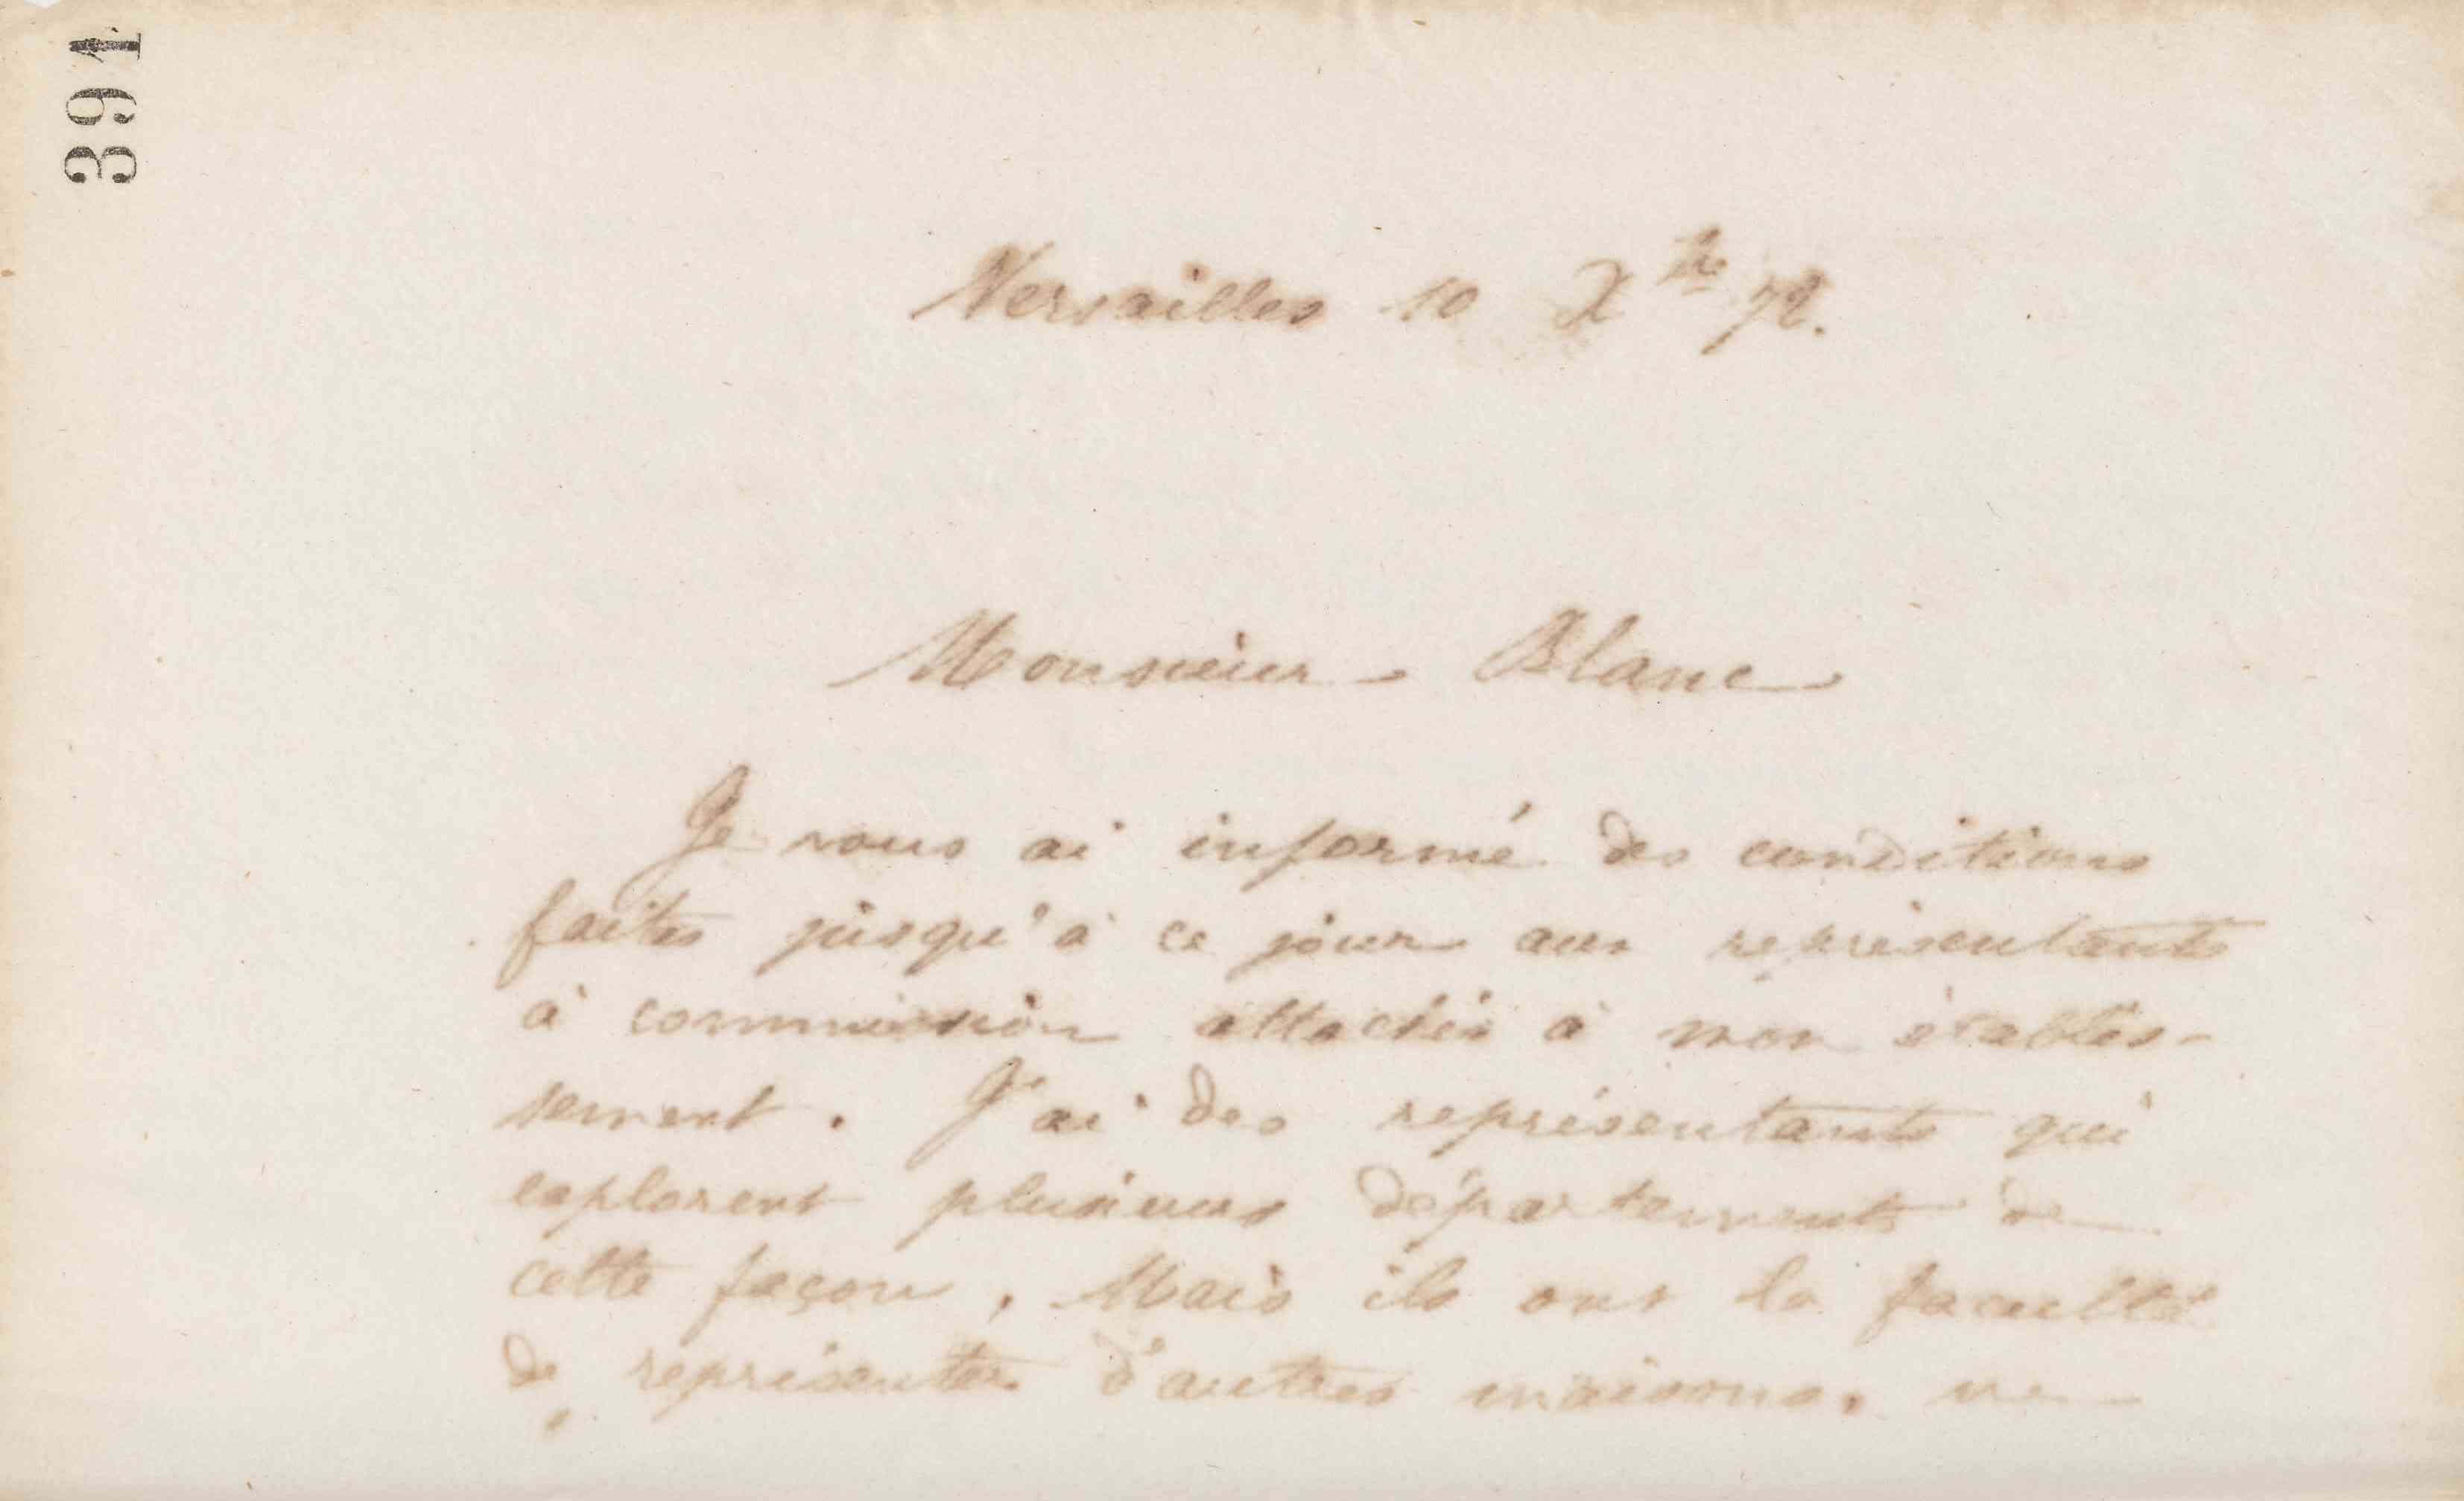 391
Versailles 10 Xbre 72.
Monsieur Blanc
Je vous ai informé des conditions
faites jusqu'à ce jour aux représentants
à commission attachés à mon établis-
sement. J'ai des représentants qui
explorent plusieurs départements de
cette façon, Mais ils ont la faculté
de représenter d'autres maisons, ne